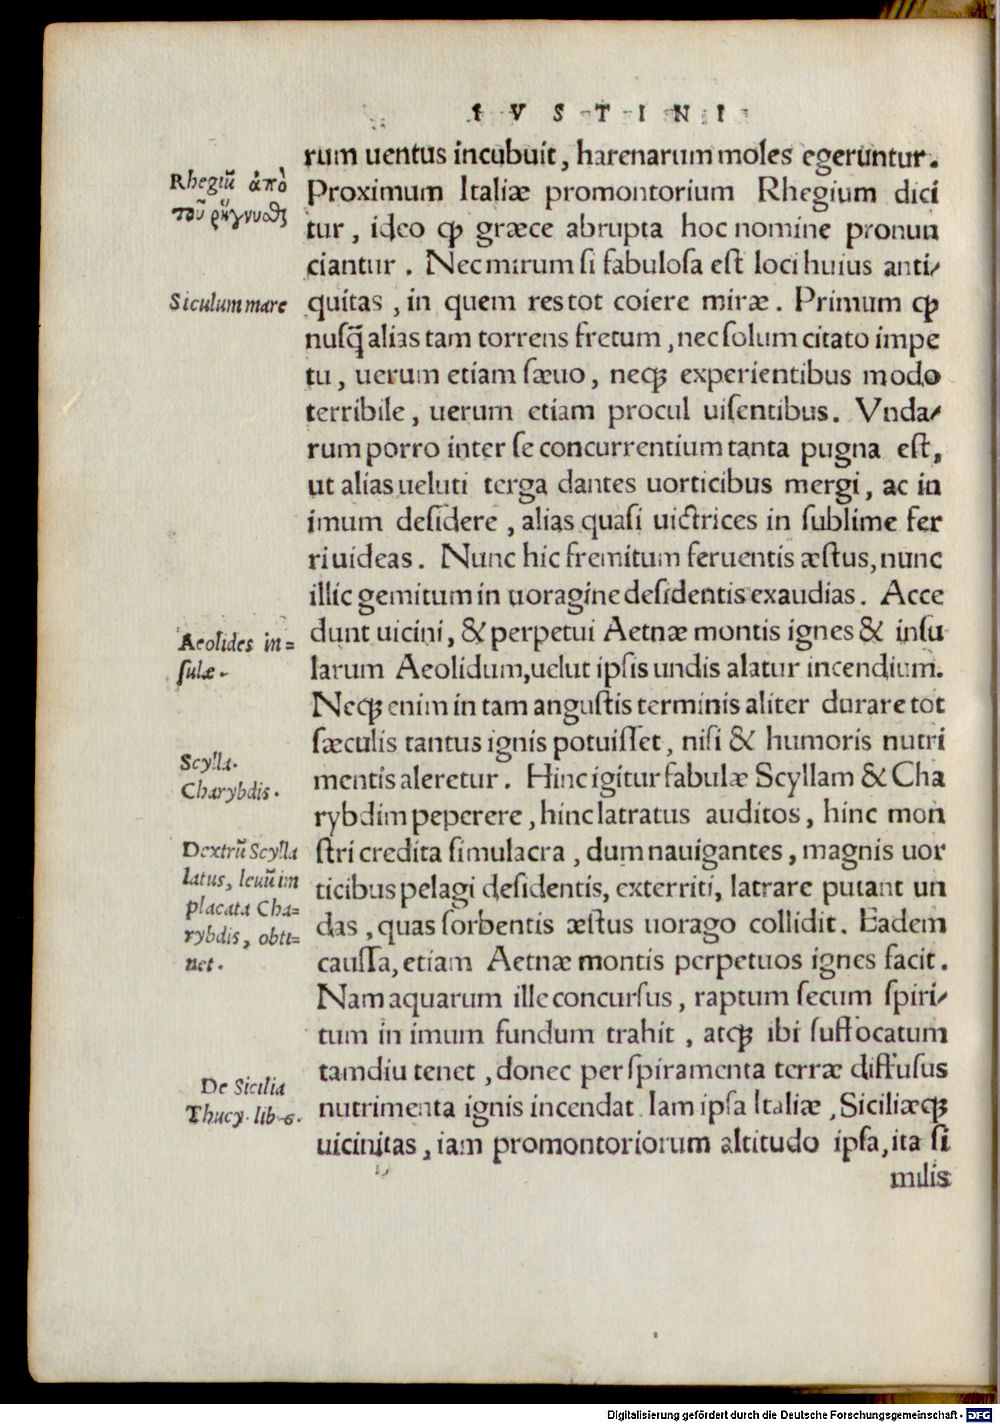 IVSTINI
rum uentus incubuit, harenarum moles egeruntur.
Rhegiũ ἀπὸ
τοῦ ῥήγνυσθαι
Proximum Italiæ promontorium Rhegium dici
tur, ideo ꝙ græce abrupta hoc nomine pronun
ciantur. Nec mirum si fabulosa est loci huius anti/
Siculum mare
quitas, in quem res tot coiere miræ. Primum ꝙ
nusq̃ alias tam torrens fretum, nec solum citato impe
tu, uerum etiam sæuo, neqꝫ experientibus modo
terribile, uerum etiam procul uisentibus. Vnda/
rum porro inter se concurrentium tanta pugna est,
ut alias ueluti terga dantes uorticibus mergi, ac in
imum desidere, alias quasi uictrices in sublime fer
ri uideas. Nunc hic fremitum feruentis æstus, nunc
illic gemitum in uoragine desidentis exaudias. Acce
Aeolides in=
sulæ.
dunt uicini, & perpetui Aetnæ montis ignes & insu
larum Aeolidum, uelut ipsis undis alatur incendium.
Neqꝫ enim in tam angustis terminis aliter durare tot
sæculis tantus ignis potuisset, nisi & humoris nutri
Scylla.
Charybdis.
mentis aleretur. Hinc igitur fabulæ Scyllam & Cha
rybdim peperere, hinc latratus auditos, hinc mon
Dextrũ Scylla
latus, leuũ im
placata Cha=
rybdis, obti=
net.
stri credita simulacra, dum nauigantes, magnis uor
ticibus pelagi desidentis, exterriti, latrare putant un
das, quas sorbentis æstus uorago collidit. Eadem
caussa, etiam Aetnæ montis perpetuos ignes facit.
Nam aquarum ille concursus, raptum secum spiri/
tum in imum fundum trahit, atqꝫ ibi suffocatum
tamdiu tenet, donec per spiramenta terræ diffusus
De Sicilia
Thucy. lib. 6.
nutrimenta ignis incendat. Iam ipsa Italiæ, Siciliæqꝫ
uicinitas, iam promontoriorum altitudo ipsa, ita si
milis
Digitalisierung gefördert durch die Deutsche Forschungsgemeinschaft - DFG